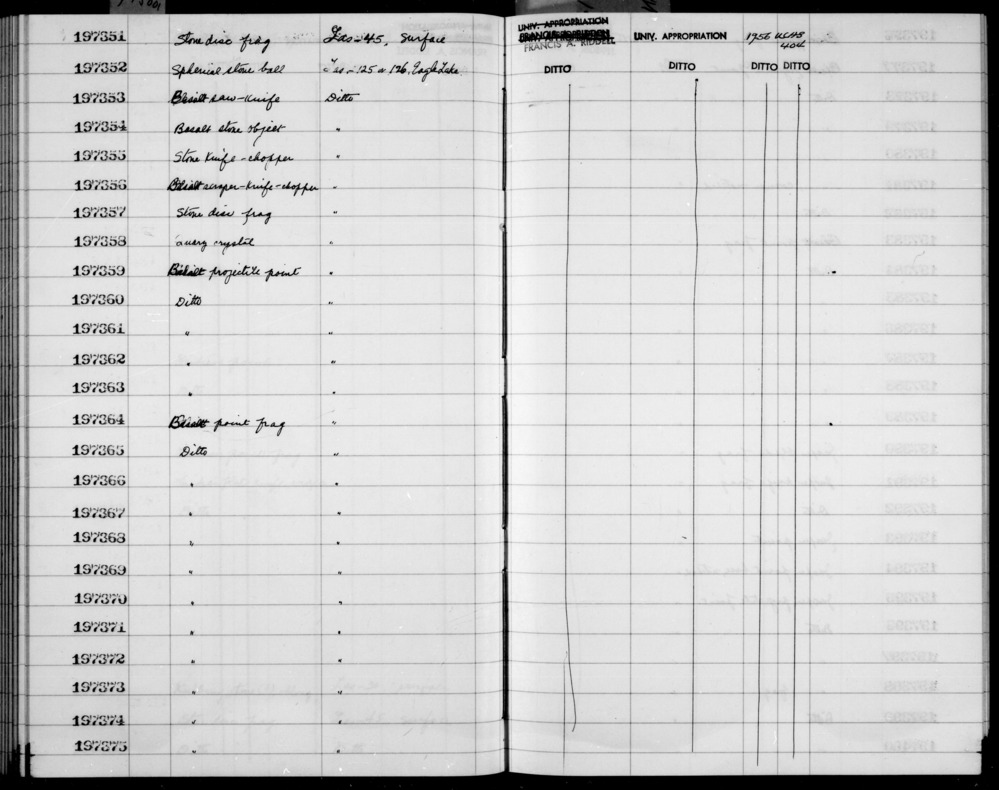 197351 Stone disc frag Las-45, Surface UNIV. APPROPRIATION FRANCIS A. RIDDELL UNIV. APPROPRIATION 1956 UCAS 404
197352 Spherical stone ball Las-125 or 126, Eagle Lake DITTO DITTO DITTO DITTO
197353 Basalt saw-knife Ditto
197354 Basalt stone object "
197355 Stone knife-chopper "
197356 Basalt scraper-knife-chopper "
197357 Stone disc frag "
197358 Quartz crystal "
197359 Basalt projectile point "
197360 Ditto "
197361 " "
197362 " "
197363 " "
197364 Basalt point frag "
197365 Ditto "
197366 " "
197367 " "
197368 " "
197369 " "
197370 " "
197371 " "
197372 " "
197373 " "
197374 " "
197375 " "